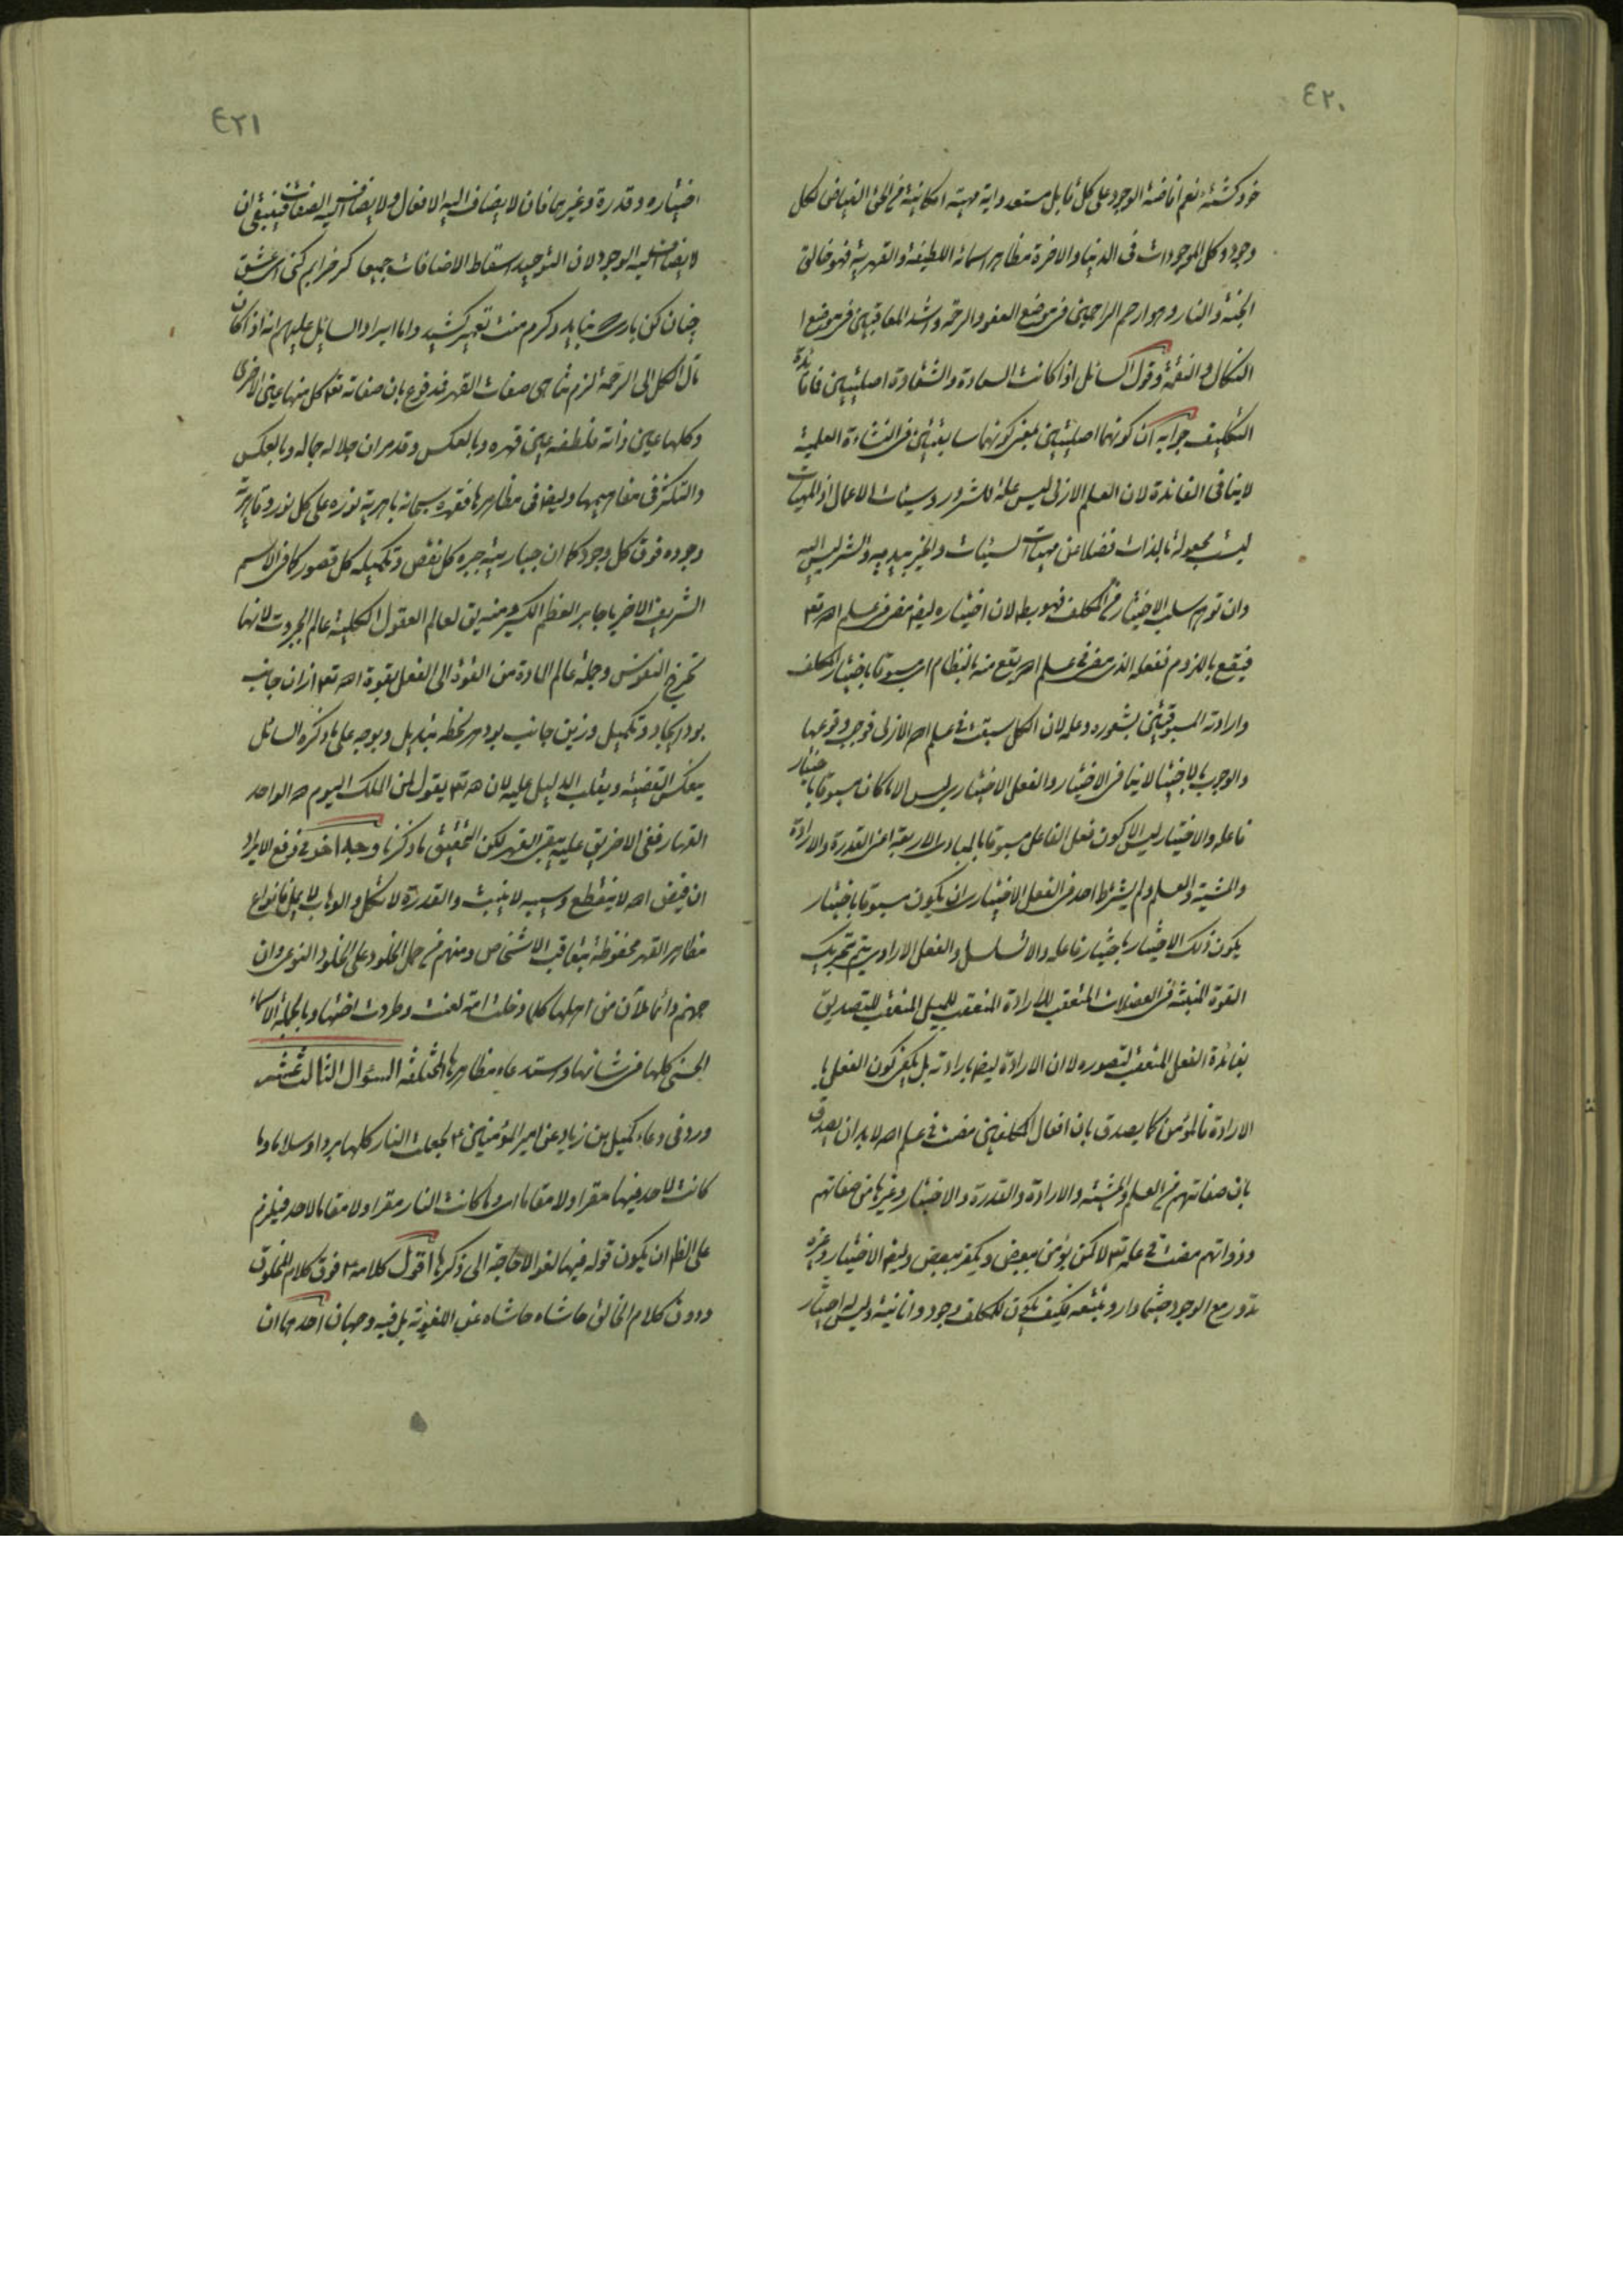 ٤٢٠
خود كشته نعم افاضة الوجود على كل قابل مستعد واية مهية امكانية من الحق الفياض لكل
وجود وكل الموجودات فى الدنيا والاخرة مظاهر اسمائه اللطيفة والقهرية فهو خالق
الجنة والنار وهو ارحم الراحمين فى موضع العفو والرحمة واشد المعاقبين فى موضع
النكال والنقمة وقول السائل اذا كانت السعادة والشقاوة اصليتين فما فائدة
التكليف جوابه ان كونهما اصليتين بمعنى كونهما سابقتين فى النشاة العلمية
لا ينافى الفائدة لان العلم الازلى ليس علة للشرور وسيئات الاعمال اذ المهيات
ليست مجعولة بالذات فضلا عن مهيات السيئات والخير بيديه والشر ليس اليه
وان توهم سلب الاختيار من المكلف فهو بط لان اختياره ايض مضى فى علم الله تع
فيقع باللزوم ففعله الذى مضى فى علم الله يقع منه بالنظام اى مسبوقا باختيار المكلف
وارادته المسبوقتين بشعوره وعلمه لان الكل سبقت فى علم الله الازلى فوجب وقوعها
والوجوب بالاختيار لا ينافى الاختيار والفعل الاختيارى ليس الا ما كان مسبوقا باختيار
فاعله والاختيار ليس الا كون فعل الفاعل مسبوقا بالمبادى الاربعة اعنى القدرة والارادة
والمشية والعلم ولم يشترط احد فى الفعل الاختيارى ان يكون مسبوقا باختيار
يكون ذلك الاختيار باختيار فاعله والا تسلسل والفعل الارادى يتم بتحريك
القوة المنبثة فى العضلات المتعقب للارادة المتعقب للميل المتعقب للتصديق
بفائدة الفعل المتعقب لتصوره لا ان الارادة ايض بارادته بل يكفى كون الفعل با
الارادة فالمؤمن كما يصدق بان افعال المكلفين مضت فى علم الله لابد ان يصدق
بان صفاتهم من العلم والمشية والارادة والقدرة والاختيار وغيرها من صفاتهم
وذواتهم مضت فى علمه تع لا كمن يؤمن ببعض ويكفر ببعض وايض الاختيار وغيره
تدور مع الوجود حيثما دار وتتبعه فكيف يكون للمكلف وجود وانانية وليس له اختيار
٤٢١
اختياره وقدرة وغيرهما فان لا يضاف اليه الافعال ولا يضاف اليه الصفات فينبغى ان
لا يضاف اليه الوجود لان التوحيد اسقاط الاضافات جميعا كر خرابم كنى اى عشق
چنان كن بارى كه نبايد دكرم منت تعمير كشيد واما ايراد السائل عليهم انه اذا كان
مآل الكل الى الرحمة لزم تناهى صفات القهر فمدفوع بان صفاته تع كل منها عين الاخرى
وكلها عين ذاته فلطفه عين قهره وبالعكس وقد مر ان جلاله جماله وبالعكس
والتكثر فى مفاهيمها وايض فى مظاهرها فقهره سبحانه باهرية نوره على كل نور وقاهرية
وجوده فوق كل وجود كما ان جباريته جبره كل نقص وتكميله كل قصور كما فى الاسم
الشريف الاخر يا جابر العظم الكسير ومنه يق لعالم العقول الكلية عالم الجبروت لانها
تخرج النفوس وجملة عالم المادة من القوة الى الفعل بقوة الله تع ازان جانب
بود ايجاد وتكميل وزين جانب بود هر لحظه تبديل وبوجه على ما ذكره السائل
ينعكس القضية ويقلب الدليل عليه لان الله تع يقول لمن الملك اليوم لله الواحد
القهار ففى الاخر يق عليه يبقى القهر لكن التحقيق ما ذكرنا وجه اخر فى دفع الايراد
ان فيض الله لا ينقطع وسيبه لا يغبث والقدرة لا تكل والوهاب لا يمل فانواع
مظاهر القهر محفوظة بتعاقب الاشخاص ومنهم من حمل الخلود على الخلود النوعى وان
جهنم دائما ملآن من اهلها كلما دخلت امة لعنت وطردت اختها وبالجملة الاسماء
الحسنى كلها فى شانها واستدعاء مظاهرها المختلفة السؤال الثالث عشر
ورد فى دعاء كميل بن زياد عن امير المؤمنين ع لجعلت النار كلها بردا وسلاما وما
كانت لاحد فيها مقرا ولا مقاما اى وما كانت النار مقرا ولا مقاما لاحد فيلزم
على الظ ان يكون قوله فيها لغو الا حاجة الى ذكرها اقول كلامه ع فوق كلام المخلوق
ودون كلام الخالق حاشاه حاشاه عن اللغوية بل فيه وجهان احدهما ان